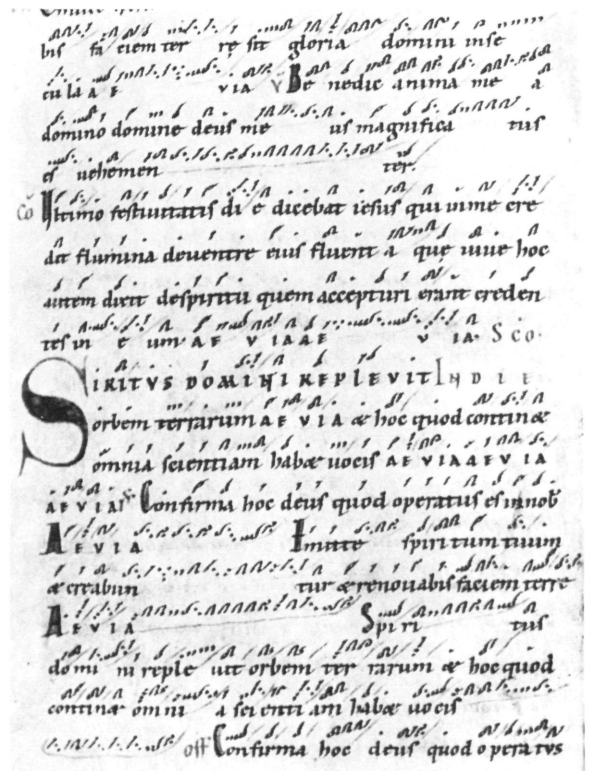 bis fa ciem ter re sit gloria domini in se
cu la A E VIA V Be nedic anima me a
domino domine deus me us magnifica tus
es vehemen ter.
Cō Vltimo festiuitatis di e dicebat iesus qui in me cre
dit flumina deuentre eius fluent a que uiue hoc
autem dixit despiritu quem accepturi erant creden
tes in e um A E V I A A E V I A. S CO.
SPIRITVS DOMINI REPLEVIT IN DIE
orbem terrarum A E V I A & hoc quod contin&
omnia scientiam hab& uocis A E V I A A E V I A
A E V I A Confirma hoc deus quod operatus es in nob
A E V I A Emitte spiritum tuum
& creabun tur & renouabis faciem terre
A E V I A Spi ri tus
domi ni reple uit orbem ter rarum & hoc quod
contin& omni a sci enti am hab& uocis
off Confirma hoc deus quod operatus